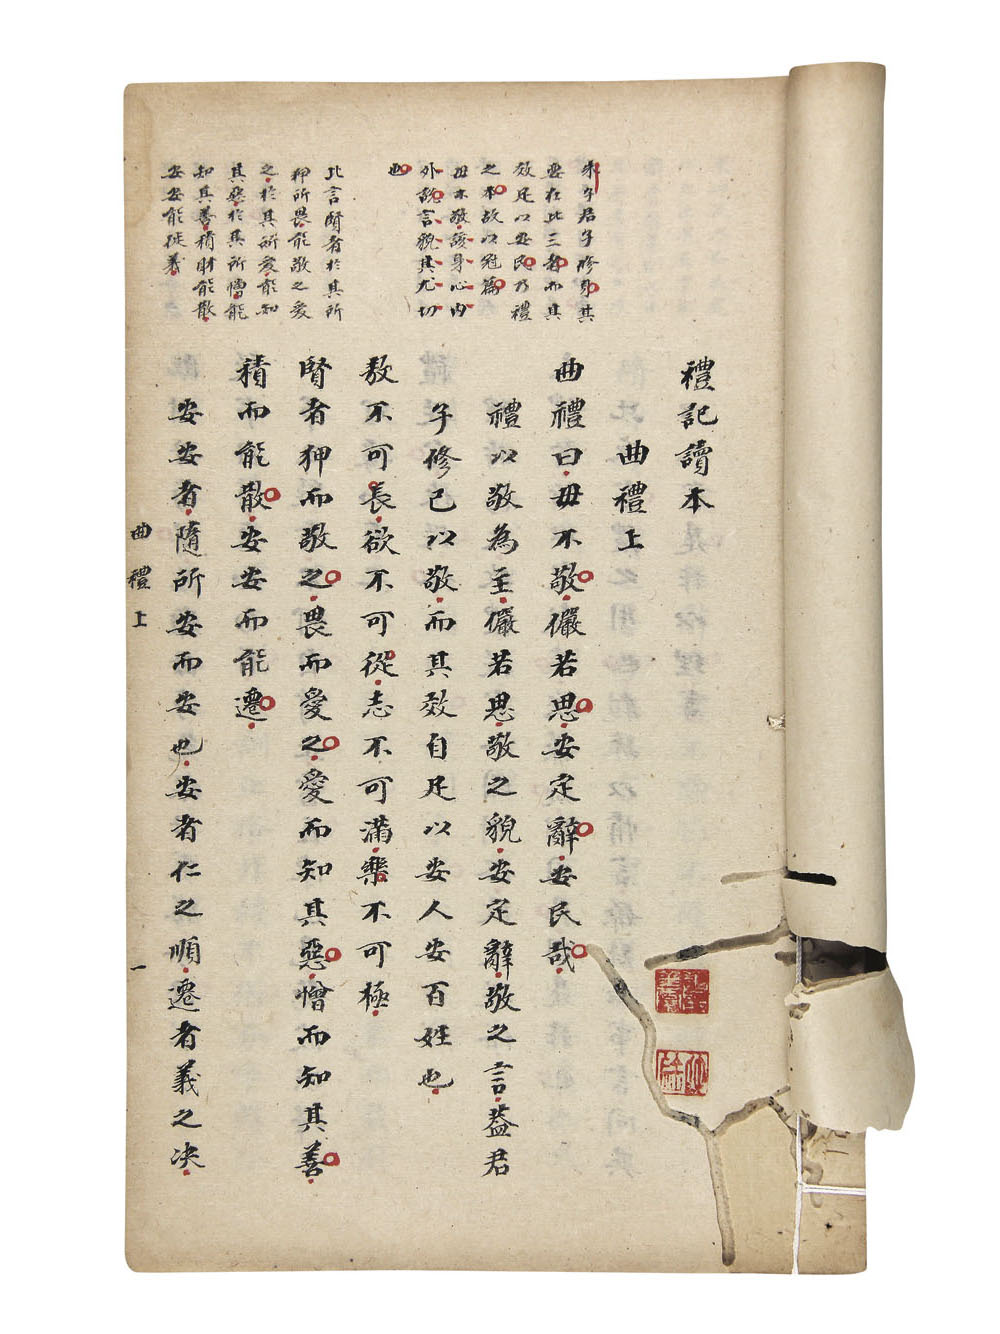 禮記讀本
曲禮上
曲禮曰毋不敬儼若思安定辭安民哉
禮以敬為主儼若思敬之貌安定辭敬之言葢君
子修己以敬而其效自足以安人安百姓也
敖不可長欲不可從志不可滿樂不可極
賢者狎而敬之畏而愛之愛而知其惡憎而知其善
積而能散安安而能遷
安安者隨所安而安也安者仁之順遷者義之决
朱子君子修身其
要在此三者而其
效足以安民乃禮
之本故以冠篇
毋不敬該身心內
外說言貌其尤切
也
此言賢者於其所
狎所畏能敬之愛
之於其所愛能知
其惡於其所憎能
知其善積財能散
安安能徙義
曲禮上
一